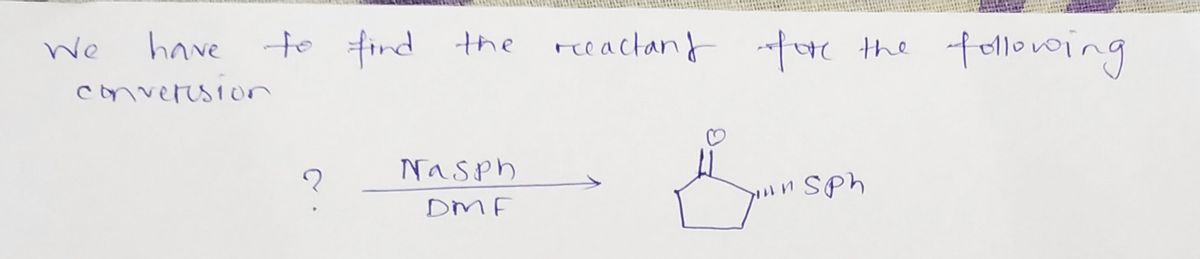 We have to find the reactant for the following
conversion
O
? NaSPh SPh
DMF